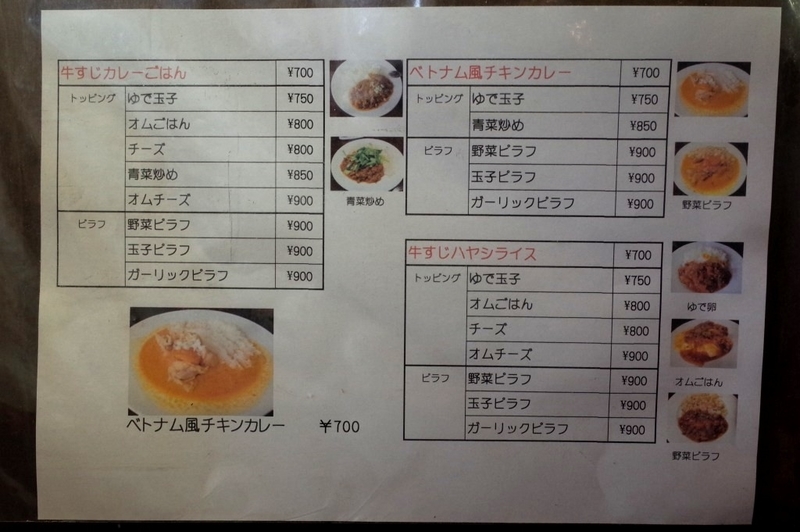 牛すじカレーごはん ¥700
トッピング ゆで玉子 ¥750
オムごはん ¥800
チーズ ¥800
青菜炒め ¥850
オムチーズ ¥900
ピラフ 野菜ピラフ ¥900
玉子ピラフ ¥900
ガーリックピラフ ¥900
青菜炒め
ベトナム風チキンカレー ¥700
ベトナム風チキンカレー ¥700
トッピング ゆで玉子 ¥750
青菜炒め ¥850
ピラフ 野菜ピラフ ¥900
玉子ピラフ ¥900
ガーリックピラフ ¥900
野菜ピラフ
牛すじハヤシライス ¥700
トッピング ゆで玉子 ¥750
オムごはん ¥800
チーズ ¥800
オムチーズ ¥900
ピラフ 野菜ピラフ ¥900
玉子ピラフ ¥900
ガーリックピラフ ¥900
ゆで卵
オムごはん
野菜ピラフ